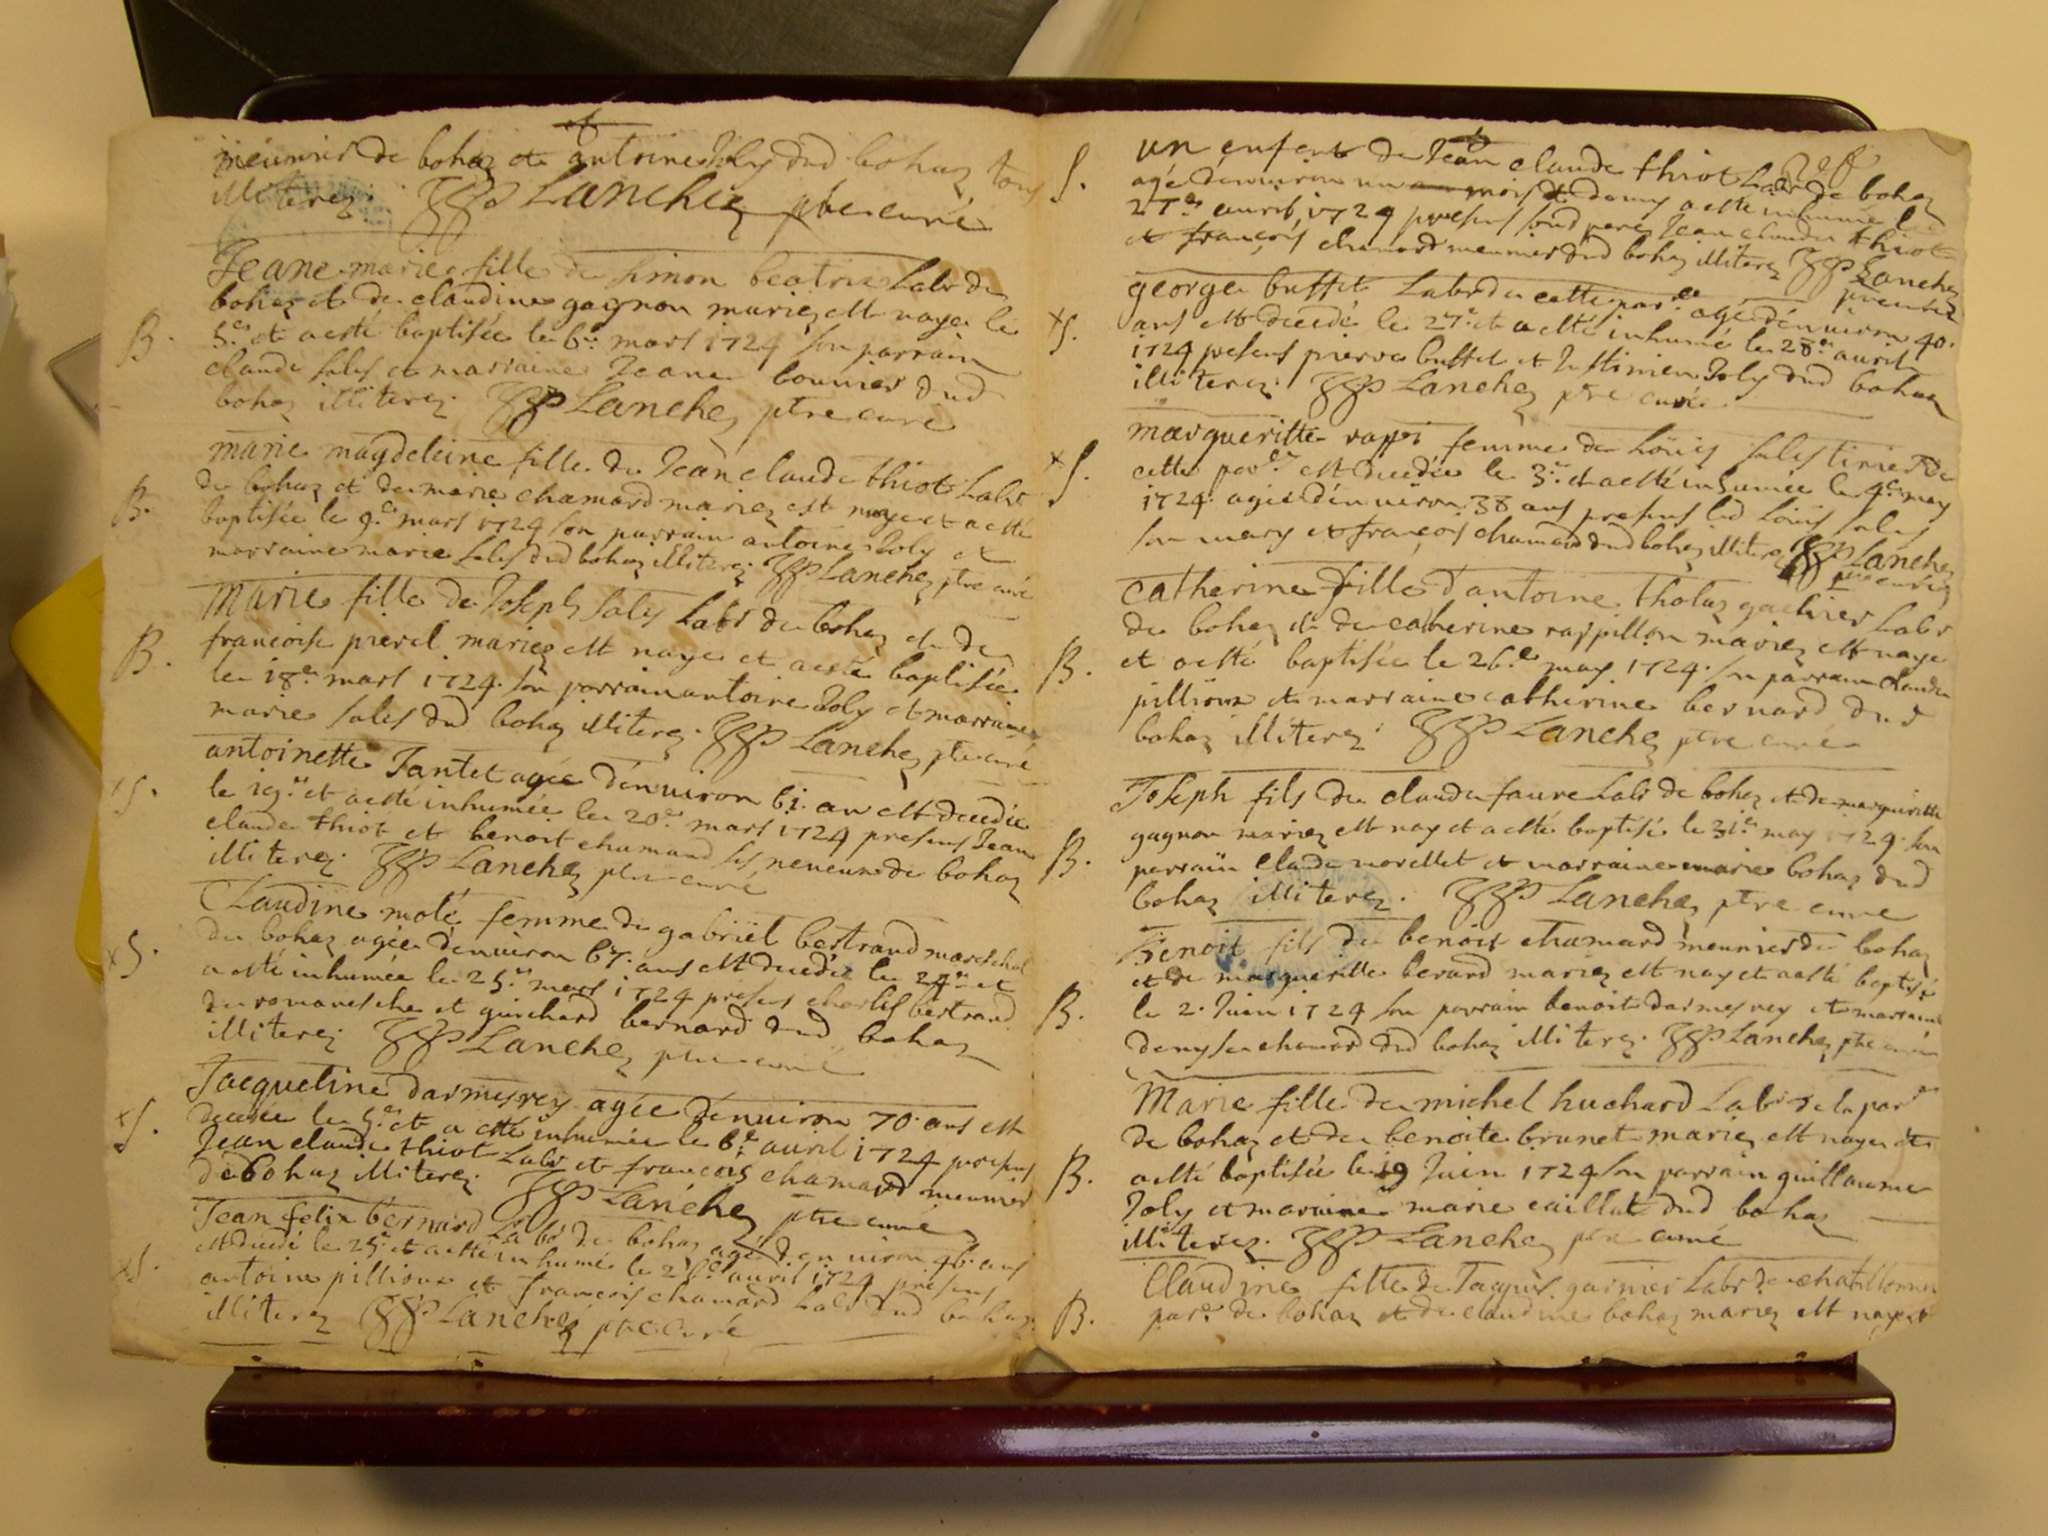 meunier de bohaz et antoine Joly dud bohaz tous
illiterez. Lanchez pbre curé
Jeane marie fille de simon beatrix Labr de
bohaz et de claudine gagnon mariez est naye le
B. 5.e et a esté baptisée le 6.e mars 1724 son parrain
claude sales et marraine Jeane bouvier dud
bohaz illiterez. Lanchez ptre curé
marie magdeleine fille de Jean claude thiot Labr
B. de bohaz et de marie chamard mariez est naye et a esté
baptisée le 9.e mars 1724 son parrain antoine Joly et
marraine marie sales dud bohaz illiterez. Lanchez ptre curé
Marie fille de Joseph Sales Labr de bohaz et de
B. francoise pierel mariez est naye et a esté baptisée
le 18.e mars 1724. son parrain antoine Joly et marraine
marie sales dud bohaz illiterez. Lanchez ptre curé
antoinette Jantet agée dénuiron 61. an est decedée
S. le 19.e et a esté inhumée le 20.e mars 1724 presens Jean
claude thiot et benoit chamard ses neveux de bohaz
illiterez. Lanchez ptre curé
Claudine molé femme de gabriel bertrand mareschal
xS. de bohaz agée denuiron 67. ans est decedée le 24.e et
a esté inhumée le 25.e mars 1724 presens charles bertrand
de romanesche et guichard bernard dud bohaz
illiterez. Lanchez ptre curé
Jacqueline darmesrey agée dénuiron 70. ans est
xS. decedée le 5.e et a esté inhumée le 6.e auril 1724 presens
Jean claude thiot Labr et francois chamard meunier
de bohaz illiterez. Lanchez ptre curé
Jean felix bernard Labr de bohaz agé denuiron 46. ans
xS. est decedé le 25.e et a esté inhumé le auril 1724 presens
antoine pillioux et francois chamard Labr dud bohaz
illiterez Lanchez ptre curé
S. un enfent de Jean claude thiot Labr de bohaz
agé denuiron un mois et demy a esté inhumé le
27.e auril 1724 presens sond pere Jean claude thiot
et françois chamard meunier dud bohaz illiterez Lanchez
ptre curé
george buffet Labr de cette parce agé dénuiron 40.
xS. ans est decedé le 27.e et a esté inhumé le 28.e auril
1724 presens pierre buffet et Justinien Joly dud bohaz
illiterez. Lanchez ptre curé
margueritte rappi femme de Loüis sales tixier de
xS. cette parce est decedée le 3.e et a esté inhumée le 4.e may
1724. agée dénuiron 38 ans presens led Loüis sales
son mary et françois chamard dud bohaz illiterez Lanchez
ptre curé
Catherine fille d'antoine tholaz gachier Labr
de bohaz et de catherine raspillon mariez est naye
B. et a esté baptisée le 26.e may 1724. son parrain claude
pillioux et marraine catherine bernard dud
bohaz illiterez. Lanchez ptre curé
Joseph fils de claude faure Labr de bohaz et de margueritte
gagnon mariez est nay et a esté baptisé le 31.e may 1724. son
B. parrain claude morellet et marraine marie bohaz dud
bohaz illiterez. Lanchez ptre curé
Benoit fils de benoit chamard meunier de bohaz
et de margueritte berard mariez est nay et a esté baptisé
B. le 2. Juin 1724 son parrain benoit darmesrey et marraine
denyse chamard dud bohaz illiterez. Lanchez ptre curé
Marie fille de michel huchard Labr de la parce
de bohaz et de benoite brunet mariez est naye et
B. a esté baptisée le 19 Juin 1724 son parrain guillaume
Joly et maraine marie caillat dud bohaz
illiterez. Lanchez ptre curé
Claudine fille de Jaques garnier Labr de
B. parce de bohaz et de claudine bohaz mariez est naye et